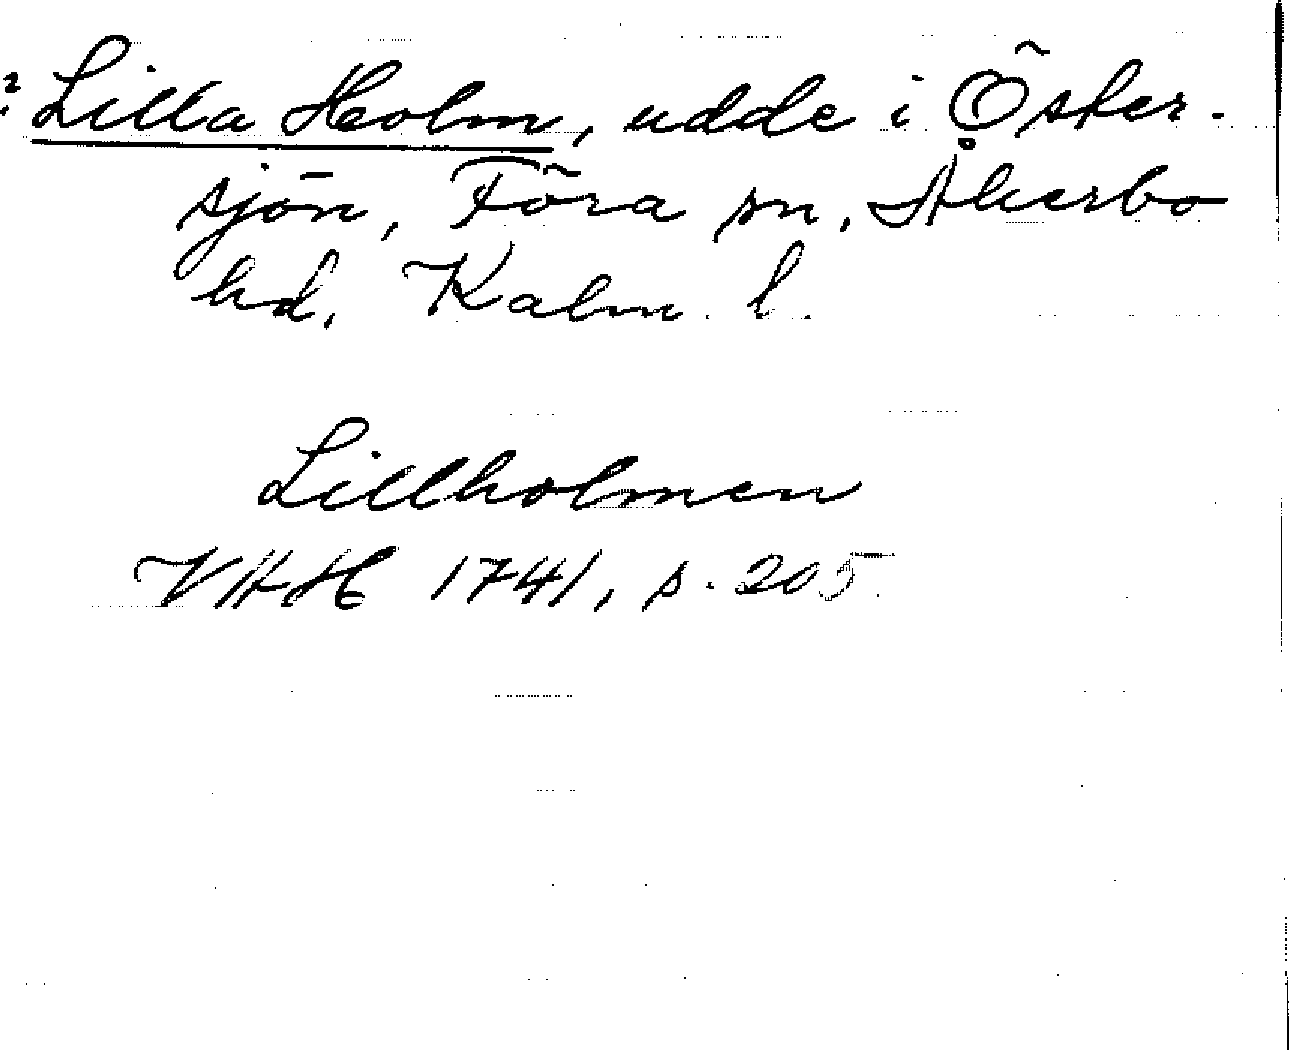 ? Lilla Holm, udde i Öster-
sjön, Föra sn, Åkerbo
hd, Kalm. l.
Lillholmen
VAH 1741, s. 205